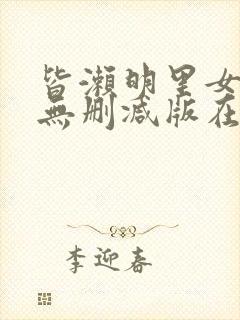 皆瀬明里女
無删減版在
李迎春